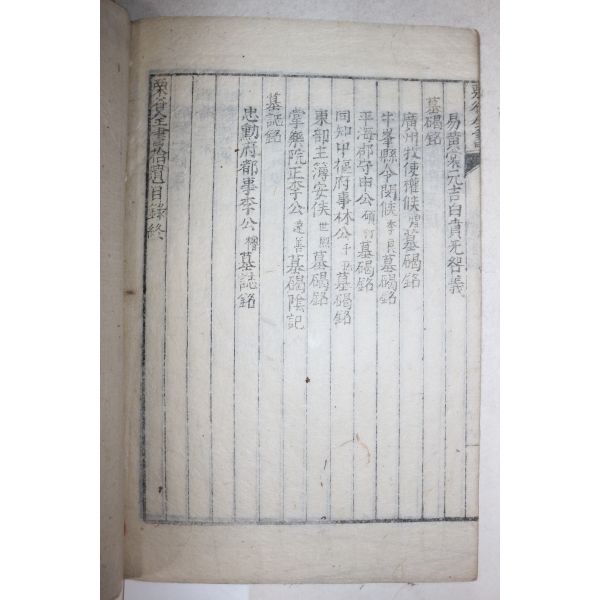 栗谷全書
易黃裳元吉白賁无咎義
墓碣銘
廣州牧使權侯墓碣銘
牛峯縣令閔侯墓碣銘
平海郡守申公墓碣銘
同知中樞府事林公墓碣銘
東部主簿安侯世熙墓碣銘
掌樂院正李公墓碣陰記
墓誌銘
忠勳府都事李公墓誌銘
栗谷全書拾遺目錄終